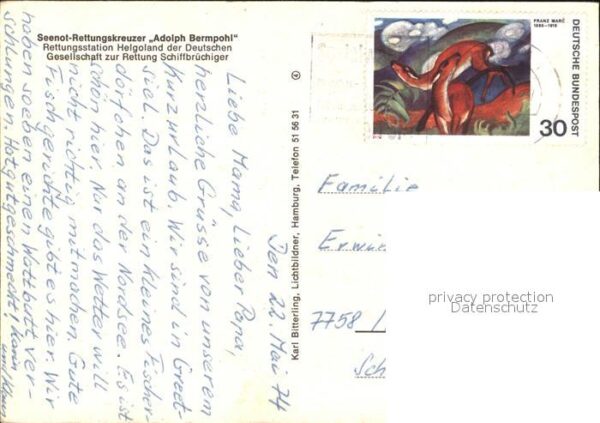 Seenot-Rettungskreuzer „Adolph Bermpohl"
Rettungsstation Helgoland der Deutschen
Gesellschaft zur Rettung Schiffbrüchiger
Den 22. Mai 74
Liebe Mama, Lieber Papa,
herzliche Grüsse von unserem
Kurzurlaub. Wir sind in Greet-
siel. Das ist ein kleines Fischer-
dörfchen an der Nordsee. Es ist
schön hier. Nur das Wetter will
nicht richtig mitmachen. Gute
Fischgerichte gibt es hier. Wir
haben soeben einen Wattbutt ver-
schlungen. Hat gut geschmeckt! Karin
und Klaus
Karl Bitterling, Lichtbildner, Hamburg, Telefon 51 56 31
FRANZ MARC
1880-1916
DEUTSCHE BUNDESPOST
30
Familie
Erwi
7758
Sch
privacy protection
Datenschutz